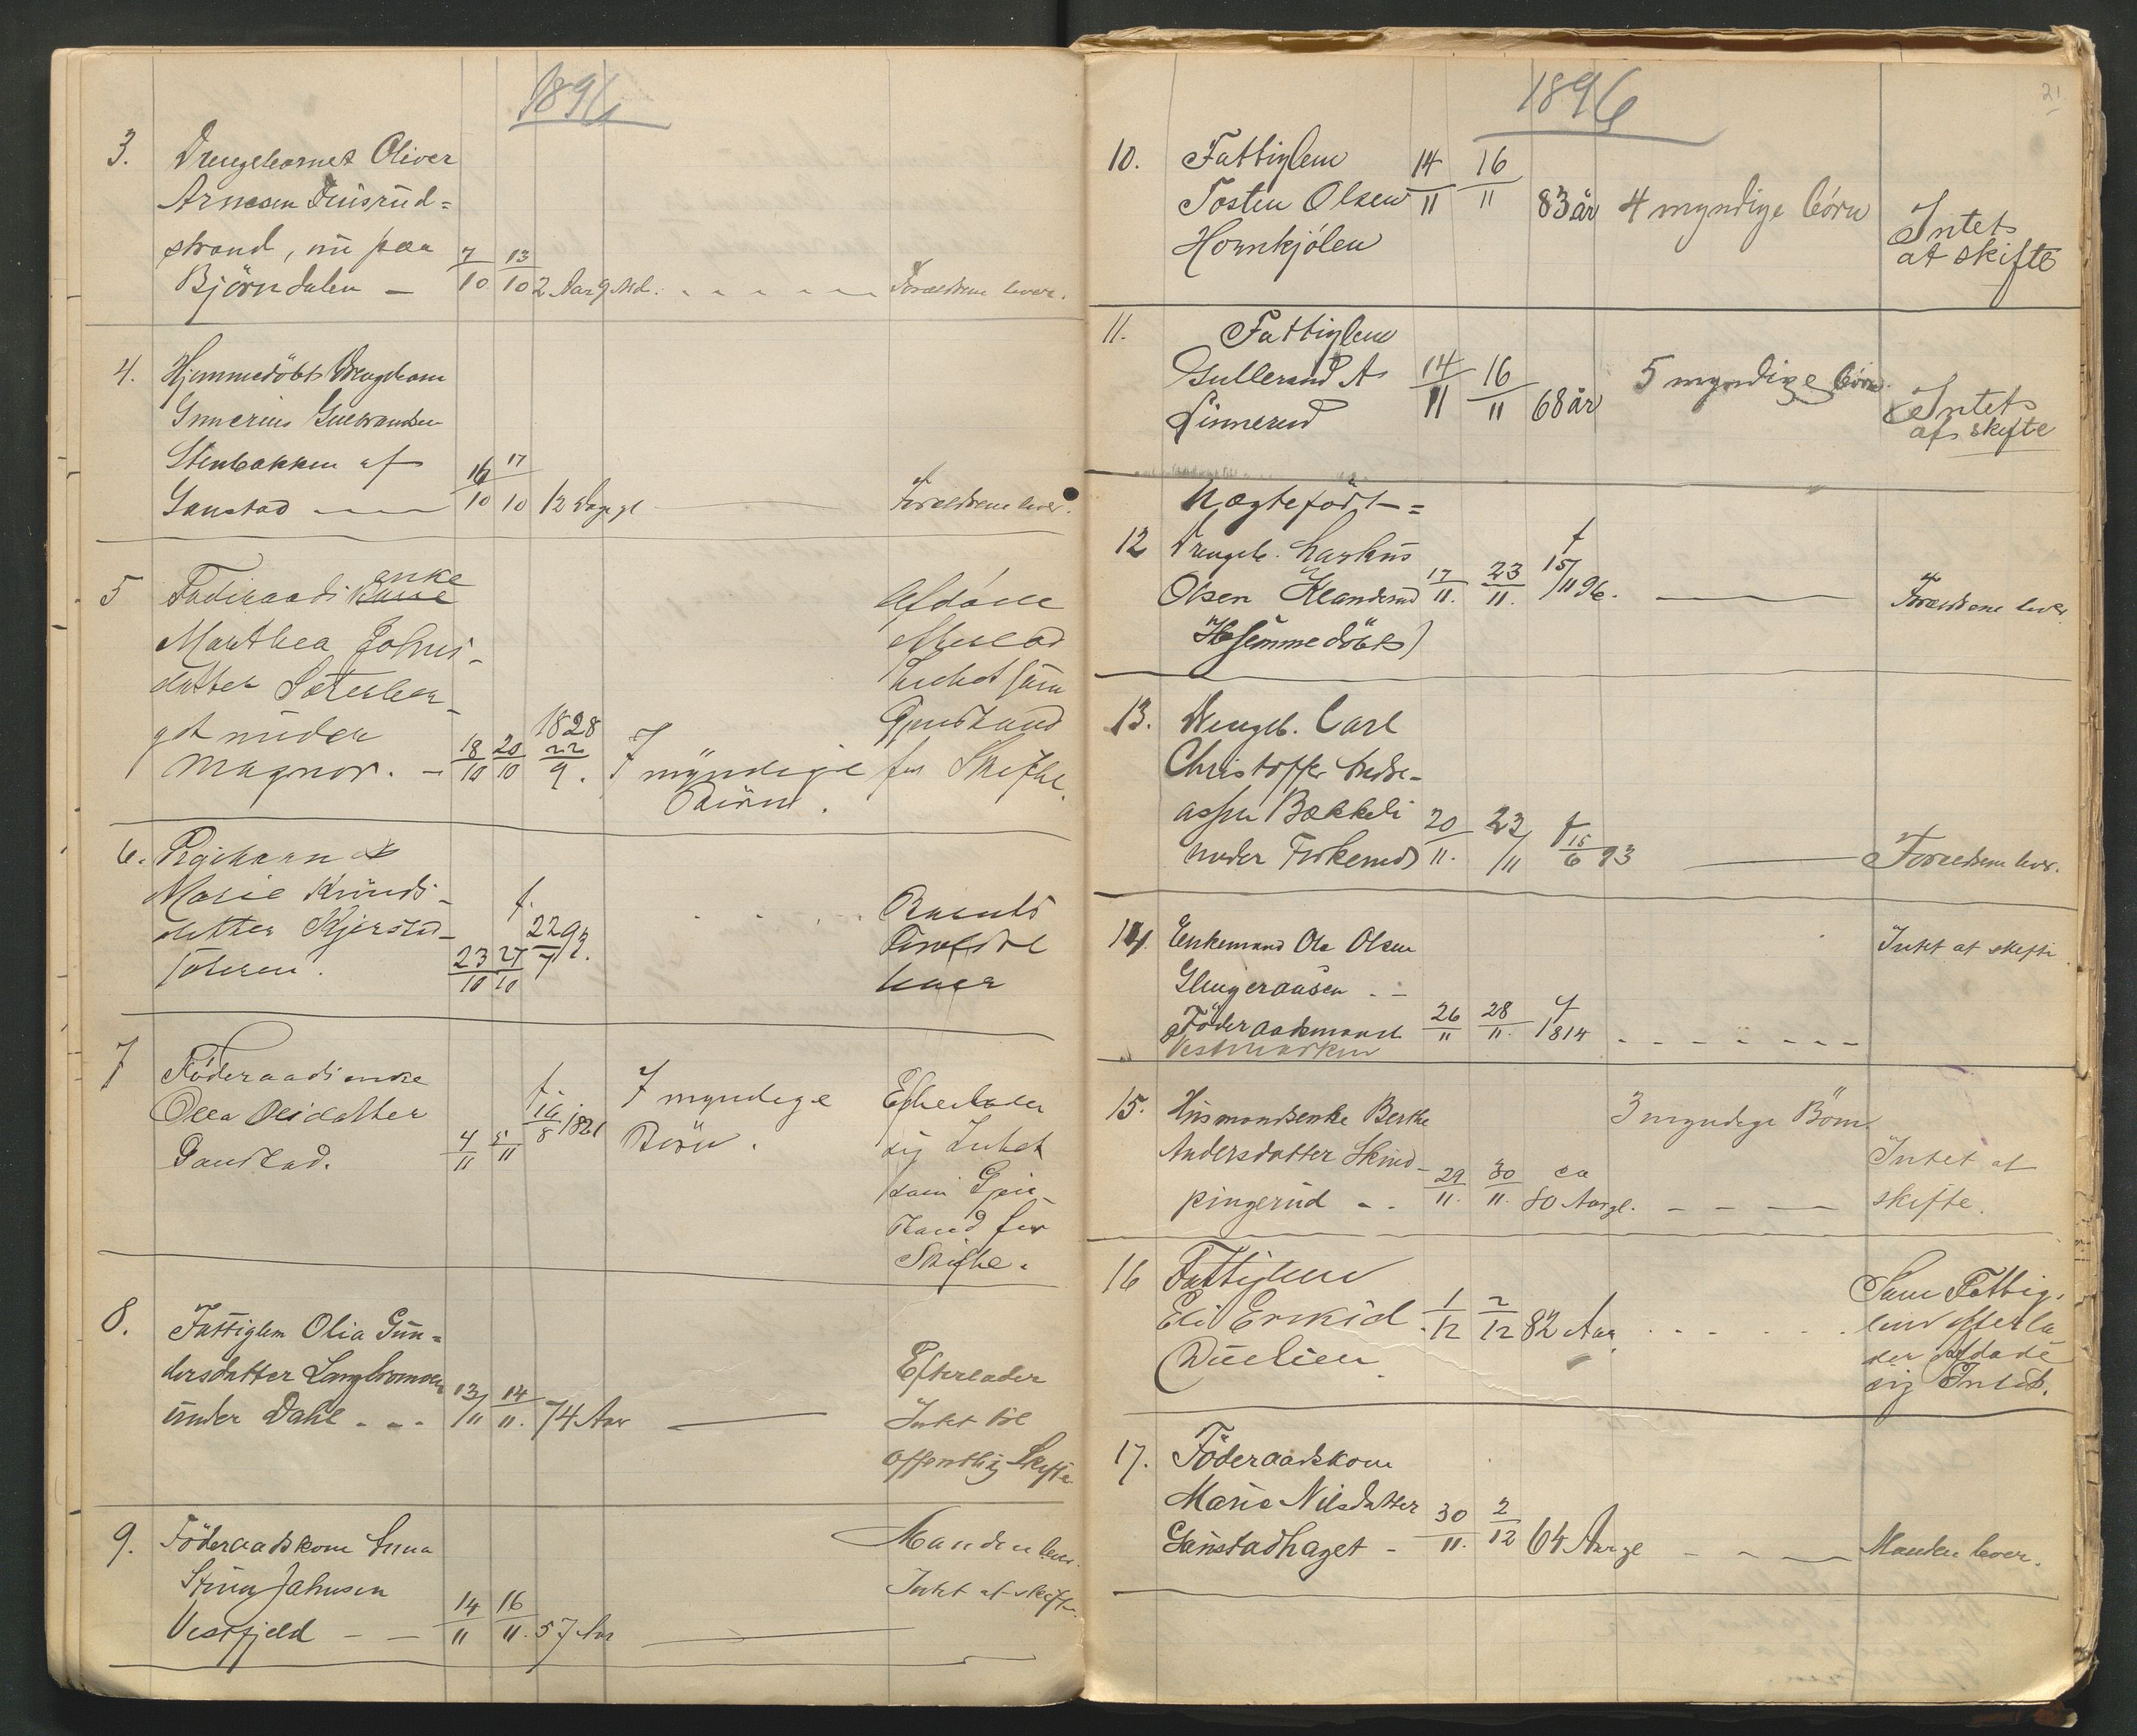 1896
3. Drengebarnet Oliver
Arnesen
strand, nu paa
Björndalen — 7/10 13/10 2 Aar 9 Md. Forældrene lever.
4. Hjemmedöbt Drengebarn
Gulbrandsen
Stenbakken af
Ganstad — 16/10 17/10 12 Dage gl. — Forældrene lever.
5 Föderaads Enke
Marthea Johns-
datter
under
Magnor. — 18/10 20/10 1828 22/9. 7 myndige
Börn.
Afdöde
efterlod
Intet som
Gjenstand
for Skifte.
6. Pigebarn
Marie Knuds-
datter Kjerstad-
23/10 27/10 f. 22/7 93.
Forældre
lever
7 Föderaadsenke
Olea Olsdatter
Ganstad. 4/11 5/11 f. 16/8 1821 7 myndige
Börn.
Efterlader
sig Intet
som Gjen-
stand for
Skifte.
8. Fattiglem Olia Gun-
dersdatter
under Dahl - - - 13/11 14/11. 74 Aar —
Efterlader
Intet til
offentlig Skifte
9. Föderaadskone Anna
Johnsen
Vestfjeld — — 14/11 16/11. 57 Aar —
Manden lever.
Intet at skifte.
21
1896
10. Fattiglem
Tosten Olsen
Hornkjölen
14/11 16/11 83 år 4 myndige börn
Intet
at skifte
11. Fattiglem
Gullerud A
Finnerud
14/11 16/11 68 år 5 myndige börn.
Intet
at skifte
Uægtefödt =
12 Drengeb.
Olsen 17/11. 23/11. f 15/11 96. — Forældrene lever
(Hjemmedöbt)
13. Drengeb. Carl
Christoffer Andre-
assen Bækkeli
under 20/11. 23/11 f 15/6 93 — Forældrene lever.
14. Enkemand Ole Olsen
Föderaadsmand 26/11 28/11. f 1814
Vestmarken
Intet at skifte
15. Husmandsenke Berthe
Andersdatter Skind-
pingerud - - 29/11. 30/11. ca
80 Aar gl. — — —
3 myndige Börn.
Intet at
skifte.
16 Fattiglem
Eli Eriksd. 1/12 2/12 82 Aar
Som Fattig-
lem efterla
der afdöde
sig Intet.
17. Föderaadskone
Marie Nilsdatter
Ganstadhaget - 30/11. 2/12 64 Aar gl — — — Manden lever.